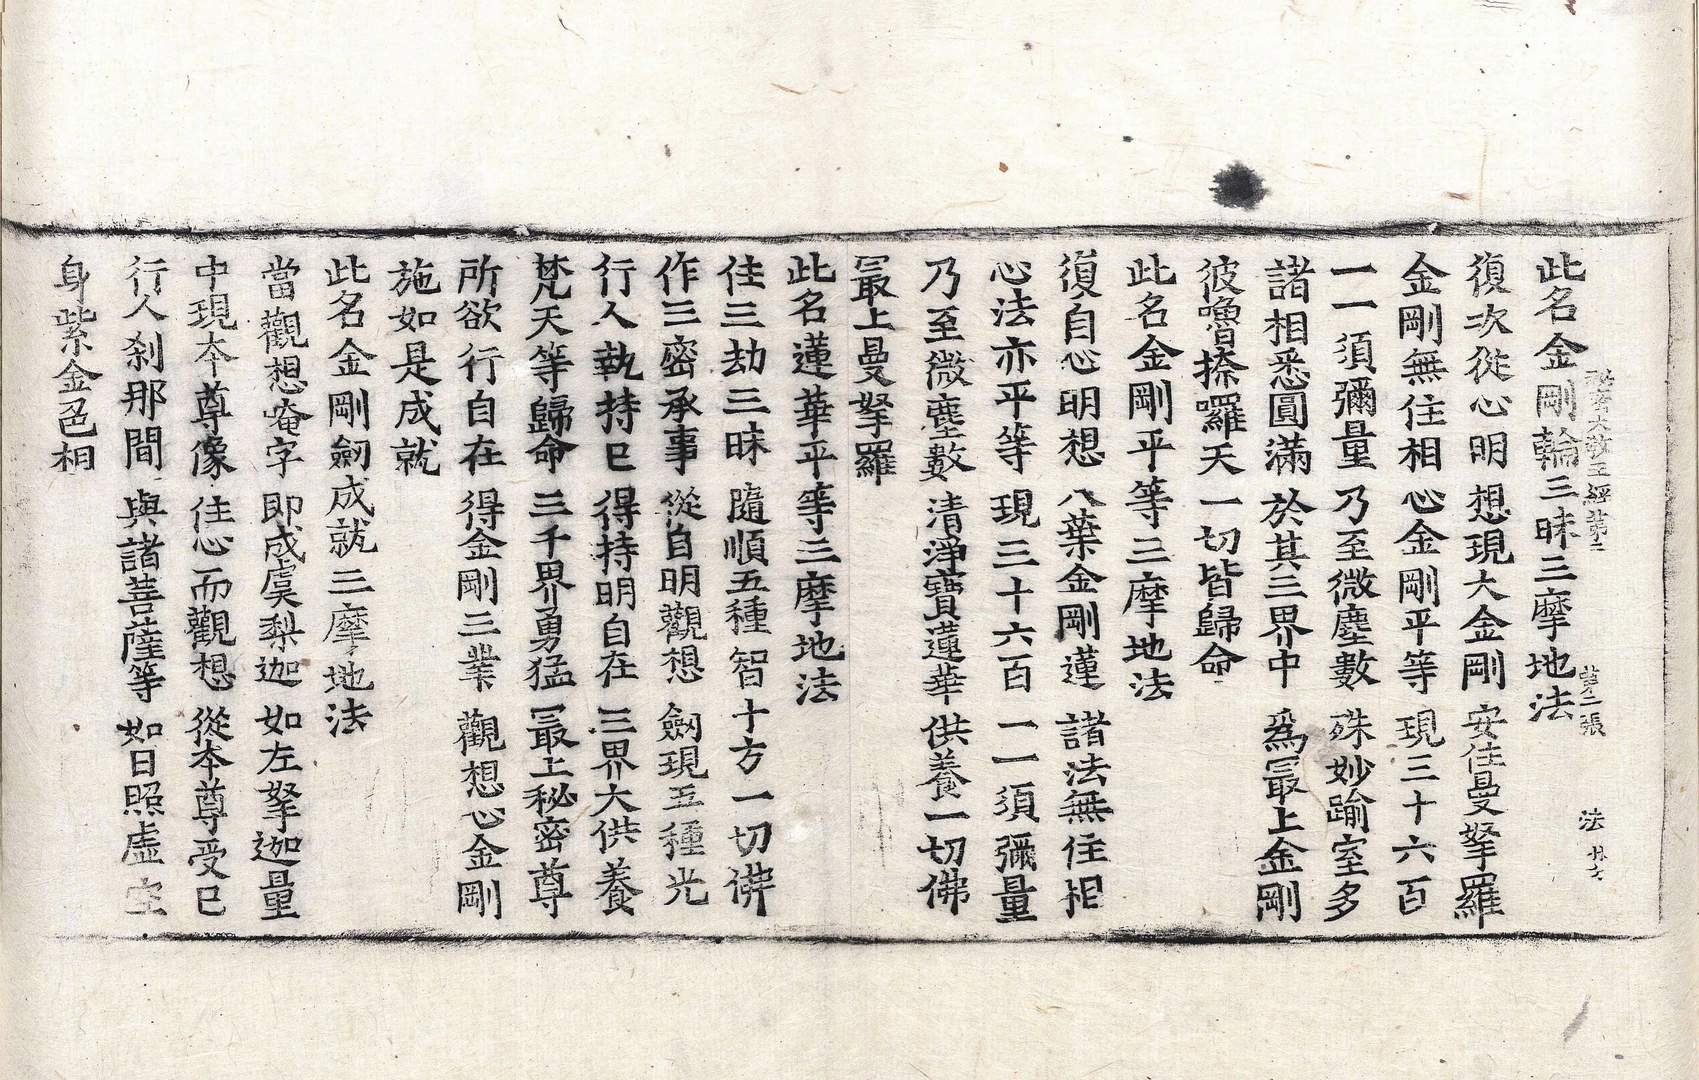 大教王經第二　第二張　法
此名金剛輪三昧三摩地法
復次從心明　想現大金剛　安住曼拏羅
金剛無住相　心金剛平等　現三十六百
一一須彌量　乃至微塵數　殊妙踰室多
諸相悉圓滿　於其三界中　爲㝡上金剛
彼嚕捺囉天　一切皆歸命
此名金剛平等三摩地法
復自心明想　八葉金剛蓮　諸法無住相
心法亦平等　現三十六百　一一須彌量
乃至微塵數　清淨寶蓮華　供養一切佛
㝡上曼拏羅
此名蓮華平等三摩地法
住三劫三昧　隨順五種智　十方一切佛
作三密承事　從自明觀想　劒現五種光
行人執持已　得持明自在　三界大供養
梵天等歸命　三千界勇猛　㝡上秘密尊
所欲行自在　得金剛三業　觀想心金剛
施如是成就
此名金剛劒成就三摩地法
當觀想唵字　即成虞梨迦　如左拏迦量
中現本尊像　住心而觀想　從本尊受已
行人刹那間　與諸菩薩等　如日照虛空
身紫金色相